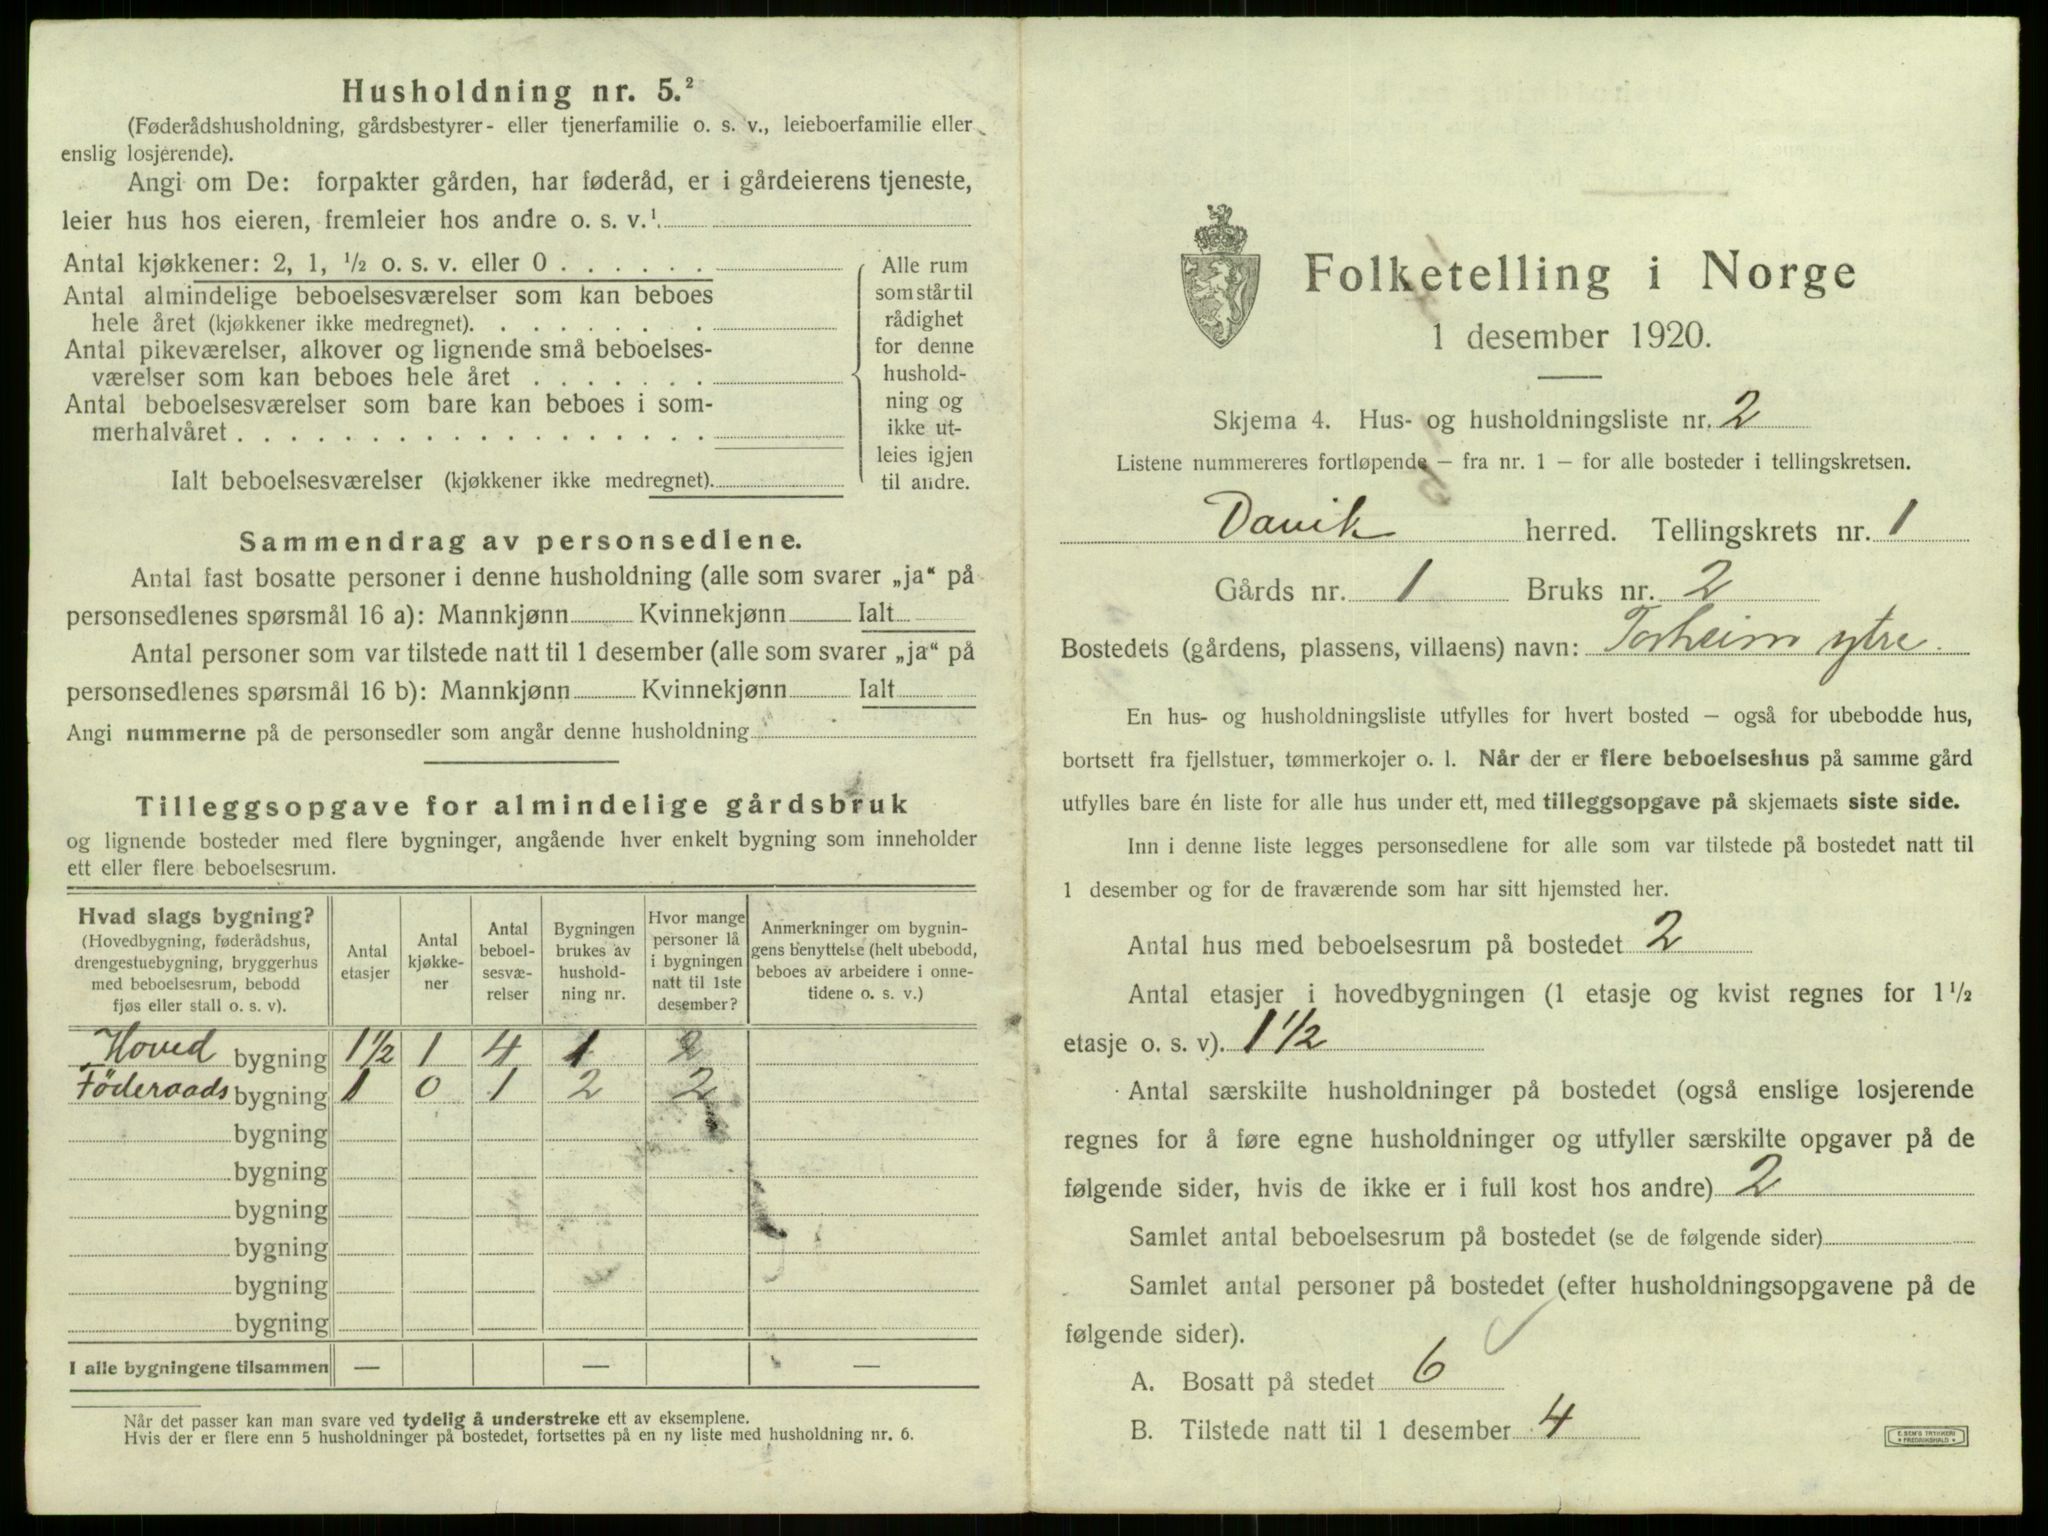 Husholdning nr. 5.²
(Føderådshusholdning, gårdsbestyrer- eller tjenerfamilie o. s. v., leieboerfamilie eller
enslig losjerende).
Angi om De: forpakter gården, har føderåd, er i gårdeierens tjeneste,
leier hus hos eieren, fremleier hos andre o. s. v.¹
Antal kjøkkener: 2, 1, ½ o. s. v. eller 0
Antal almindelige beboelsesværelser som kan beboes
hele året (kjøkkener ikke medregnet).
Antal pikeværelser, alkover og lignende små beboelses-
værelser som kan beboes hele året
Antal beboelsesværelser som bare kan beboes i som-
merhalvåret
Ialt beboelsesværelser (kjøkkener ikke medregnet).
Alle rum
som står til
rådighet
for denne
hushold-
ning og
ikke ut-
leies igjen
til andre.
Sammendrag av personsedlene.
Antal fast bosatte personer i denne husholdning (alle som svarer „ja“ på
personsedlenes spørsmål 16 a): Mannkjønn Kvinnekjønn Ialt
Antal personer som var tilstede natt til 1 desember (alle som svarer „ja“ på
personsedlenes spørsmål 16 b): Mannkjønn Kvinnekjønn Ialt
Angi nummerne på de personsedler som angår denne husholdning
Tilleggsopgave for almindelige gårdsbruk
og lignende bosteder med flere bygninger, angående hver enkelt bygning som inneholder
ett eller flere beboelsesrum.
Hvad slags bygning?
(Hovedbygning, føderådshus,
drengestuebygning, bryggerhus
med beboelsesrum, bebodd
fjøs eller stall o. s. v).
Antal
etasjer
Antal
kjøkke-
ner
Antal
beboel-
sesvæ-
relser
Bygningen
brukes av
hushold-
ning nr.
Hvor mange
personer lå
i bygningen
natt til 1ste
desember?
Anmerkninger om bygnin-
gens benyttelse (helt ubebodd,
beboes av arbeidere i onne-
tidene o. s. v.)
Hoved bygning 1½ 1 4 1 2
Föderaads bygning 1 0 1 2 2
bygning
bygning
bygning
bygning
bygning
bygning
I alle bygningene tilsammen — — —
Når det passer kan man svare ved tydelig å understreke ett av eksemplene.
Hvis der er flere enn 5 husholdninger på bostedet, fortsettes på en ny liste med husholdning nr. 6.
Folketelling i Norge
1 desember 1920.
Skjema 4. Hus- og husholdningsliste nr. 2
Listene nummereres fortløpende – fra nr. 1 – for alle bosteder i tellingskretsen.
Davik herred. Tellingskrets nr. 1
Gårds nr. 1 Bruks nr. 2
Bostedets (gårdens, plassens, villaens) navn: Torheim ytre.
En hus- og husholdningsliste utfylles for hvert bosted – også for ubebodde hus,
bortsett fra fjellstuer, tømmerkojer o. l. Når der er flere beboelseshus på samme gård
utfylles bare én liste for alle hus under ett, med tilleggsopgave på skjemaets siste side.
Inn i denne liste legges personsedlene for alle som var tilstede på bostedet natt til
1 desember og for de fraværende som har sitt hjemsted her.
Antal hus med beboelsesrum på bostedet 2
Antal etasjer i hovedbygningen (1 etasje og kvist regnes for 1½
etasje o. s. v). 1½
Antal særskilte husholdninger på bostedet (også enslige losjerende
regnes for å føre egne husholdninger og utfyller særskilte opgaver på de
følgende sider, hvis de ikke er i full kost hos andre) 2
Samlet antal beboelsesrum på bostedet (se de følgende sider)
Samlet antal personer på bostedet (efter husholdningsopgavene på de
følgende sider).
A. Bosatt på stedet 6
B. Tilstede natt til 1 desember 4
E. SEM'S TRYKKERI
• FREDRIKSHALD •